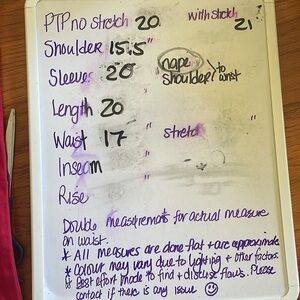 PTP no stretch 20 with stretch 21
Shoulder 15.5"
Sleeves 20 nape shoulder to wrist
Length 20"
Waist 17" stretch
Inseam "
Rise
Double measurements for actual measure
on waist.
* All measures are done flat + are approximate
* Colour may vary due to lighting + other factors
* Best effort made to find + disclose flaws. Please
contact if there is any issue ☺